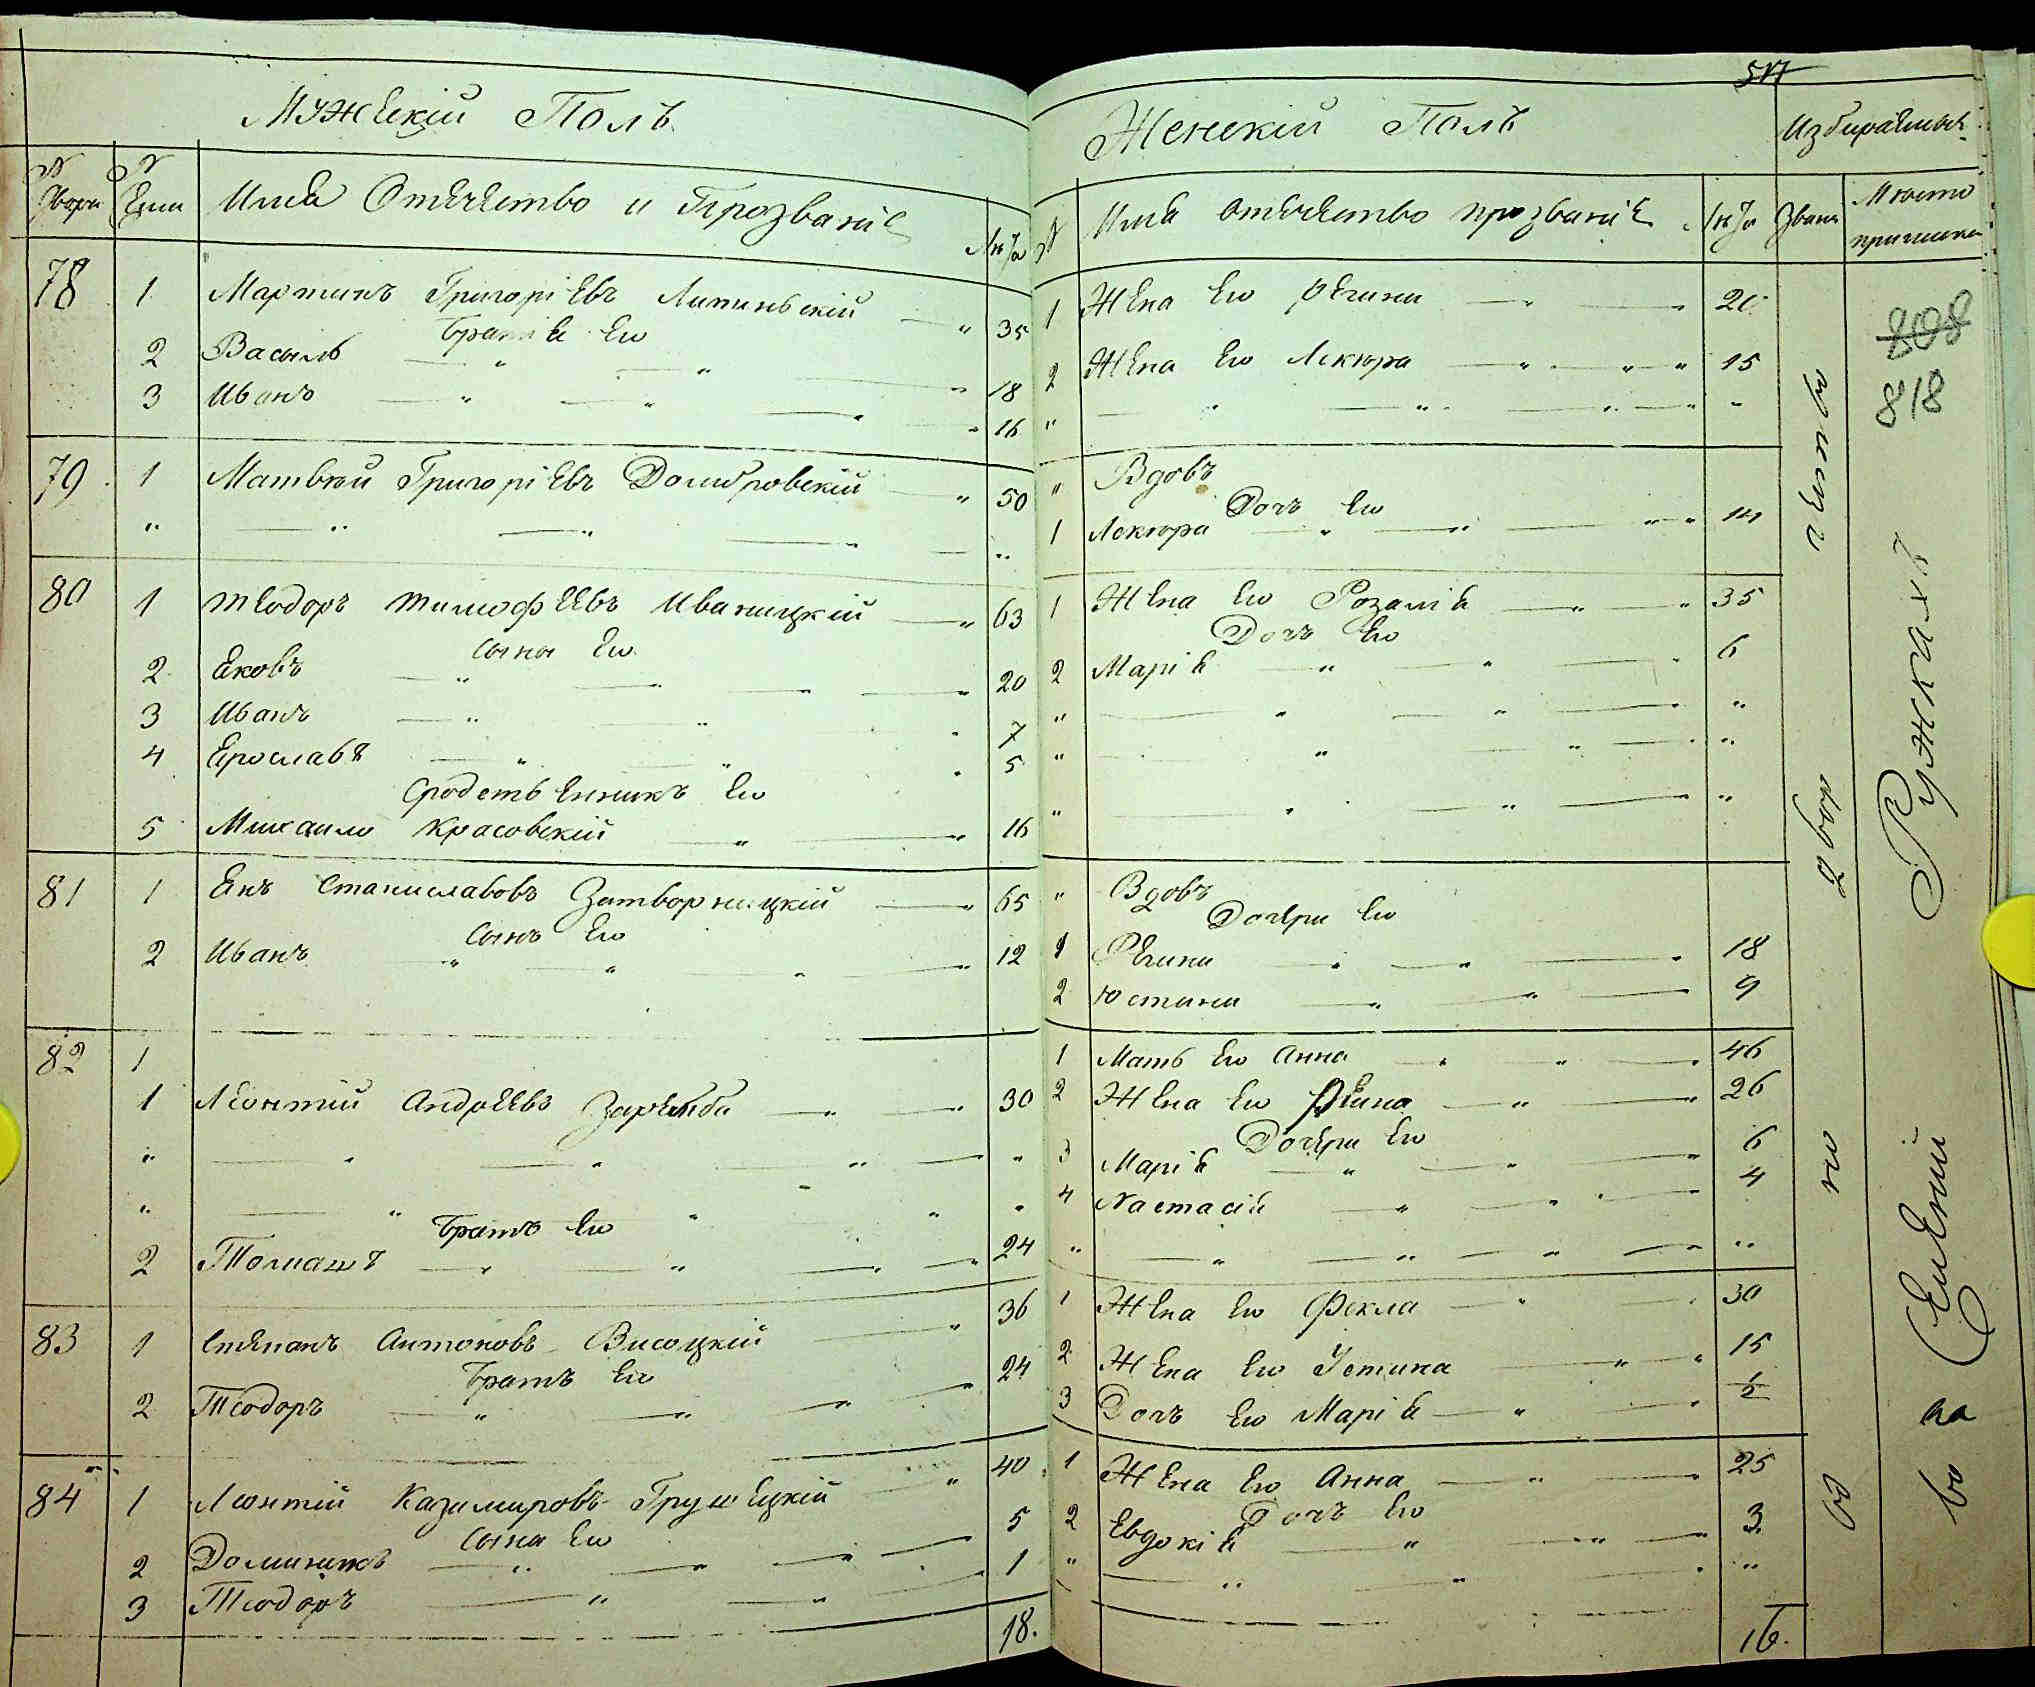 Мужескій Полъ
№ Двора
№ Души
Имя Отечество и Прозваніе
Лѣта
78 1 Мартинъ Григоріевъ Липинскій 35
Братія Его
2 Василь 18
3 Иванъ 16
79 1 Матвѣй Григоріевъ Домбровскій 50
80 1 Теодоръ Тимофеевъ Иваницкій 63
Сыны Его
2 Яковъ 20
3 Иванъ 7
4 Ерославъ 5
Сродственникъ Его
5 Михаило Красовскій 16
81 1 Янъ Станиславовъ Затворницкій 65
Сынъ Его
2 Иванъ 12
82 1
1 Леонтій Андреевъ Заремба 30
Братъ Его
2 Томашъ 24
83 1 Степанъ Антоновъ Висоцкій 36
Братъ Его
2 Теодоръ 24
84 1 Леонтій Казимировъ Грушецкій 40
Сыны Его
2 Доминикъ 5
3 Теодоръ 1
18.
517
Женскій Полъ
Избираемыя
№ Имя Отечество прозваніе Лѣта Звані
Мѣсто
1 Жена Его Регина 20
2 Жена Его Лекюра 15
Вдовъ
Дочъ Его
1 Лекюра 14
1 Жена Его Розалія 35
Дочъ Его
2 Марія 6
Вдовъ
Дочери Его
1 Регина 18
2 Юстина 9
1 Мать Его Анна 46
2 Жена Его Регина 26
Дочери Его
3 Марія 6
4 Настасія 4
1 Жена Его Фекла 30
2 Жена Его Устина 15
3 Дочъ Его Марія 1/2
1 Жена Его Анна 25
Дочъ Его
2 Евдокія 3
16.
808
818
во на Селеній Ружкахъ